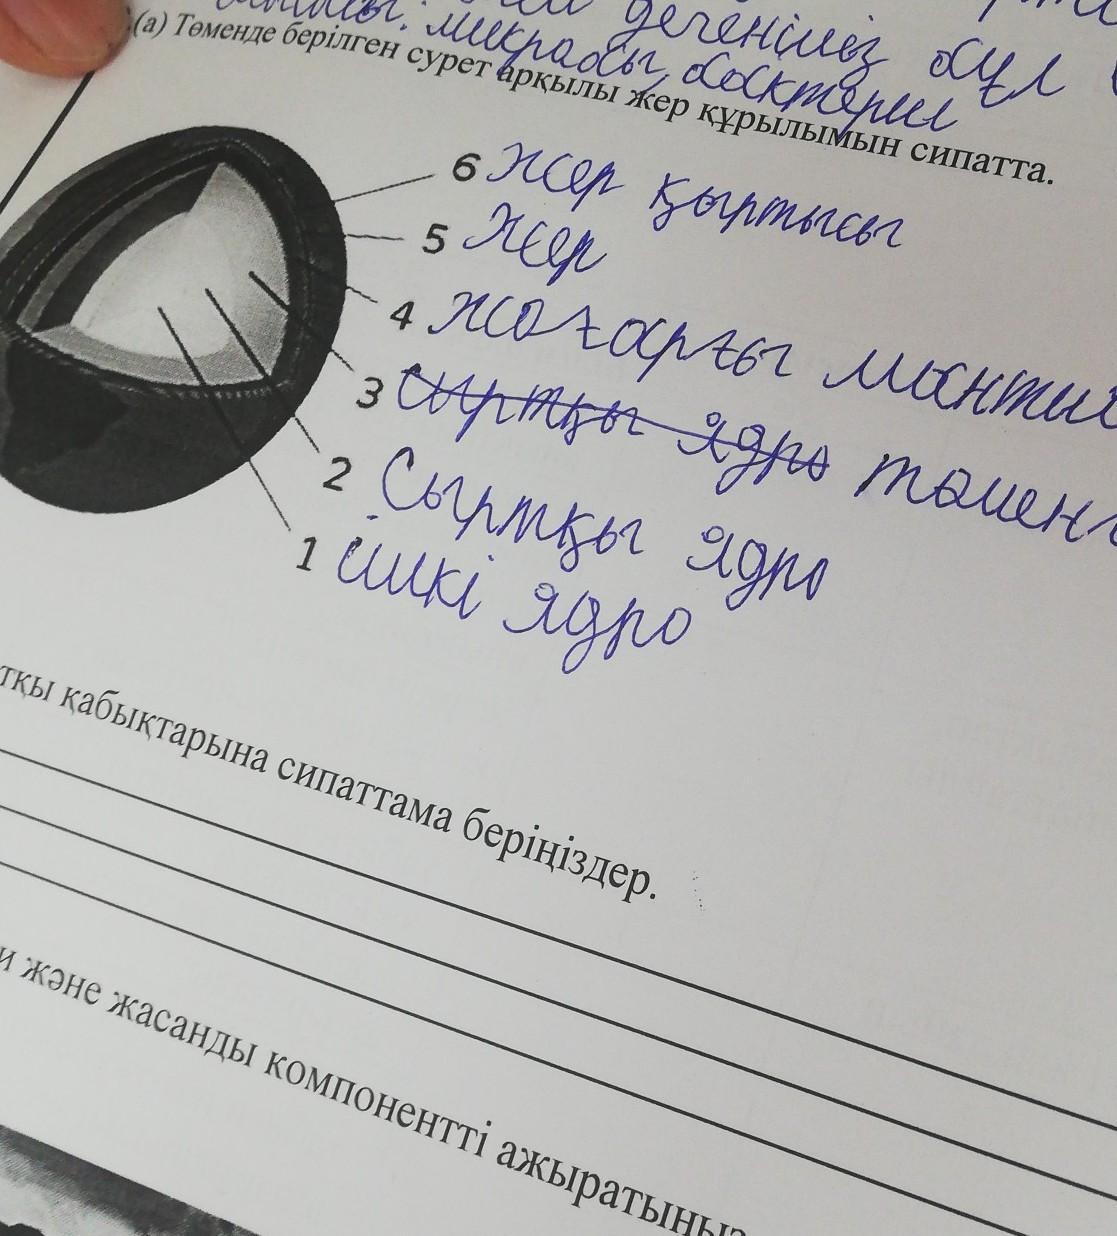 дегеніміз бұл
микрабы, бактерил
(а) Төменде берілген сурет арқылы жер құрылымын сипатта.
6 жер қыртысы
5 жер
4 жоғарғы манти
3 сыртқы ядро төмен
2 Сыртқы ядро
1 ішкі ядро
тқы қабықтарына сипаттама беріңіздер.
и және жасанды компонентті ажыратыңыз